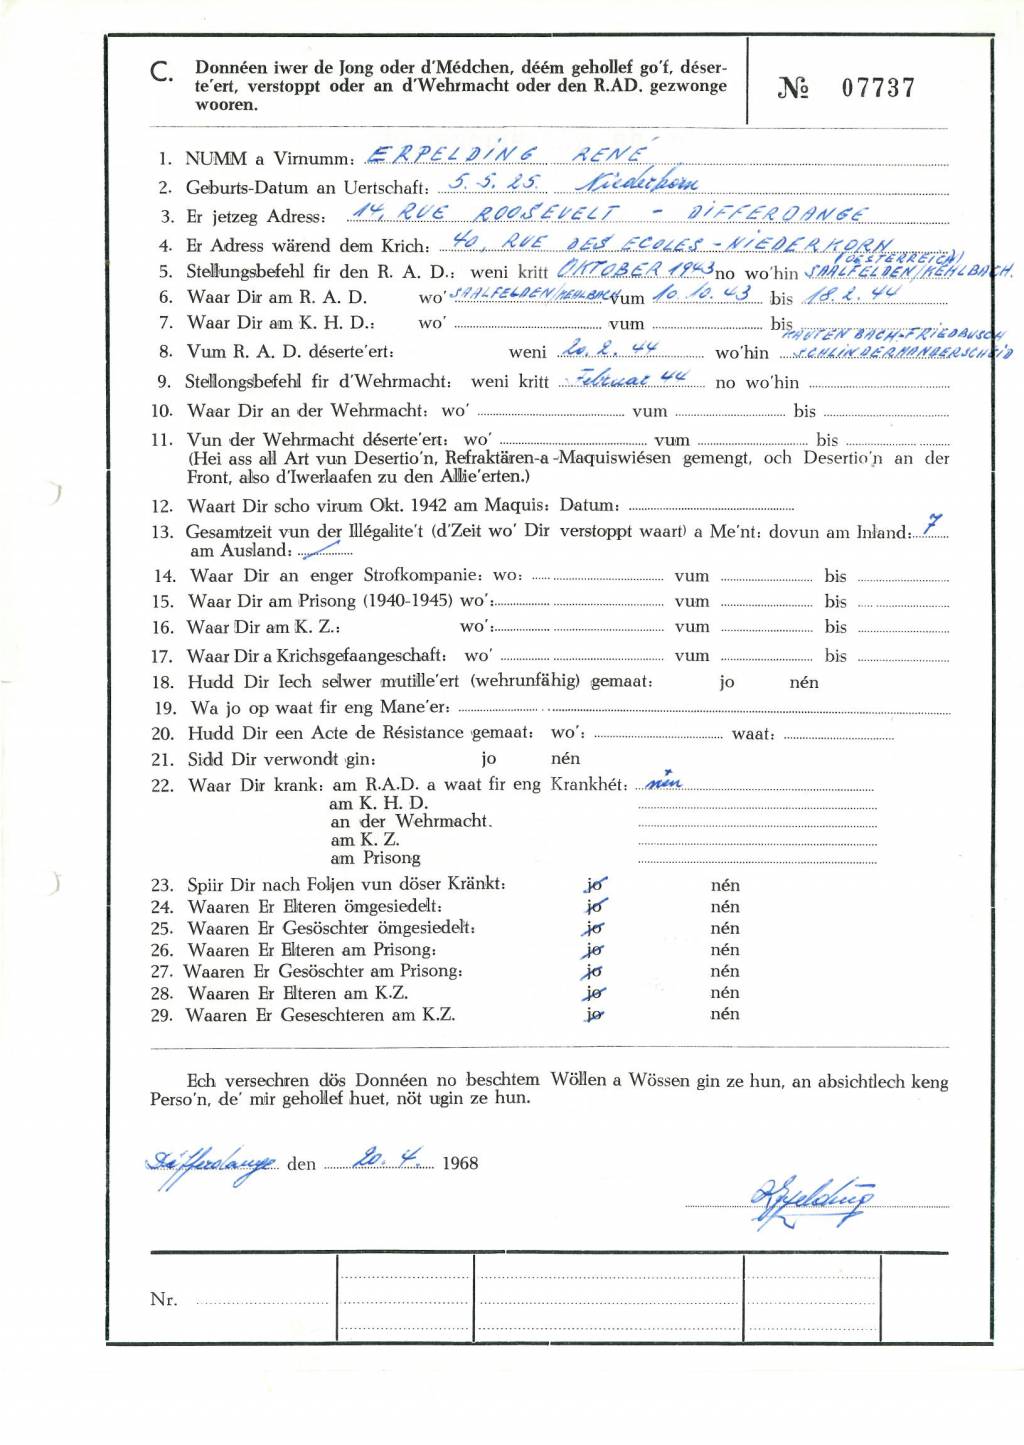 C. Donnéen iwer de Jong oder d'Médchen, déém gehollef go'f, déser-
te'ert, verstoppt oder an d'Wehrmacht oder den R.AD. gezwonge
wooren.
№ 07737
1. NUMM a Virnumm: ERPELDING RENÉ
2. Geburts-Datum an Uertschaft: 5.5.25. Niederkorn
3. Er jetzeg Adress: 14, RUE ROOSEVELT - DIFFERDANGE
4. Er Adress wärend dem Krich: 40, RUE DES ECOLES - NIEDERKORN
(OESTERREICH)
5. Stellungsbefehl fir den R. A. D.: weni kritt OKTOBER 1943 no wo'hin SAALFELDEN/KEHLBACH.
6. Waar Dir am R. A. D. wo' SAALFELDEN/KEHLBACH vum 10.10.43 bis 18.2.44
7. Waar Dir am K. H. D.: wo' vum bis
KAUTENBACH-FRIEDBUSCH
8. Vum R. A. D. déserte'ert: weni 20.2.44 wo'hin SCHLINDERMANDERSCHEID
9. Stellongsbefehl fir d'Wehrmacht: weni kritt Februar 44 no wo'hin
10. Waar Dir an der Wehrmacht: wo' vum bis
11. Vun der Wehrmacht déserte'ert: wo' vum bis
(Hei ass all Art vun Desertio'n, Refraktären-a-Maquiswiésen gemengt, och Desertio'n an der
Front, also d'Iwerlaafen zu den Allie'erten.)
12. Waart Dir scho virum Okt. 1942 am Maquis: Datum:
13. Gesamtzeit vun der Illégalite't (d'Zeit wo' Dir verstoppt waart) a Me'nt: dovun am Inland: 7
am Ausland: /
14. Waar Dir an enger Strofkompanie: wo: vum bis
15. Waar Dir am Prisong (1940-1945) wo': vum bis
16. Waar Dir am K. Z.: wo': vum bis
17. Waar Dir a Krichsgefaangeschaft: wo' vum bis
18. Hudd Dir Iech selwer mutille'ert (wehrunfähig) gemaat: jo nén
19. Wa jo op waat fir eng Mane'er:
20. Hudd Dir een Acte de Résistance gemaat: wo': waat:
21. Sidd Dir verwondt gin: jo nén
22. Waar Dir krank: am R.A.D. a waat fir eng Krankhét: nén
am K. H. D.
an der Wehrmacht.
am K. Z.
am Prisong
23. Spiir Dir nach Foljen vun döser Kränkt: jo nén
24. Waaren Er Elteren ömgesiedelt: jo nén
25. Waaren Er Gesöschter ömgesiedelt: jo nén
26. Waaren Er Elteren am Prisong: jo nén
27. Waaren Er Gesöschter am Prisong: jo nén
28. Waaren Er Elteren am K.Z. jo nén
29. Waaren Er Geseschteren am K.Z. jo nén
Ech versechren dös Donnéen no beschtem Wöllen a Wössen gin ze hun, an absichtlech keng
Perso'n, de' mir gehollef huet, nöt ugin ze hun.
Differdange den 20.4. 1968
RErpelding
Nr.